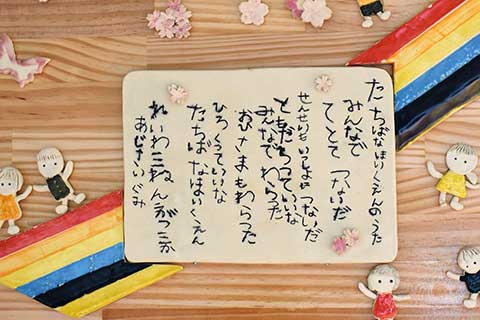 たちばなほいくえんのうた
みんなで
てとて つないだ
せんせいも いっしょに つないだ
ともだちっていいな
みんなでわらった
おひさまもわらった
ひろくっていいな
たちばなほいくえん
れいわ三ねん
あじさいぐみ